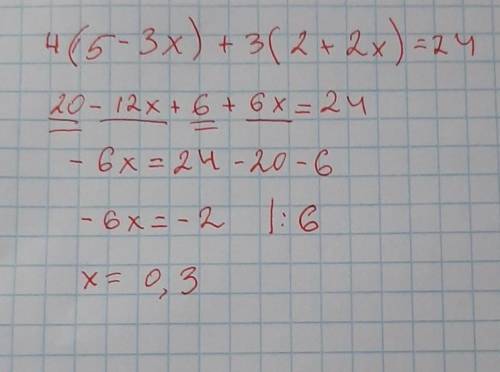 4(5 - 3x) + 3(2 + 2x) = 24
20 - 12x + 6 + 6x = 24
- 6x = 24 - 20 - 6
- 6x = - 2 |: 6
x = 0,3